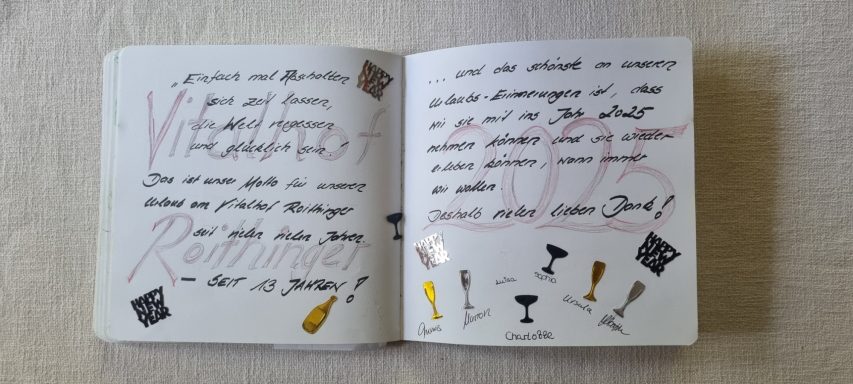 „Einfach mal Abschalten
sich Zeit lassen,
die Welt vergessen
und glücklich sein!
Vitalhof
Das ist unser Motto für unseren
Urlaub am Vitalhof Roithinger
seit vielen vielen Jahren
Roithinger
— SEIT 13 JAHREN!
HAPPY NEW YEAR
HAPPY NEW YEAR
... und das schönste an unseren
Urlaubs-Erinnerungen ist, dass
wir sie mit ins Jahr 2025
nehmen können und sie wieder
erleben können, wann immer
wir wollen.
2025
Deshalb vielen lieben Dank!
HAPPY NEW YEAR
HAPPY NEW YEAR
Luisa
Sophia
Ursula
Charlotte